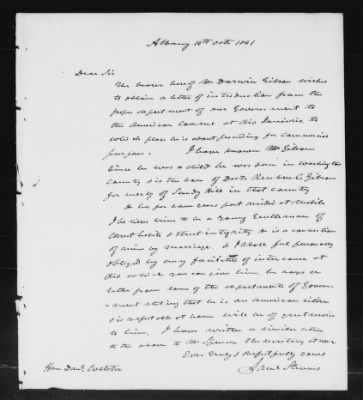 Albany 14th Octr 1841
Dear Sir
The bearer hereof Mr Darwin Gibson wishes
to obtain a letter of introduction from the
proper department of our Government to
the American Consul at Rio Janeiro, to
which place he is about proceeding for commercial
purposes. I have known Mr Gibson
since he was a child he was born in Washington
County & is the son of Doctr Reuben G. Gibson
formerly of Sandy Hill in that county
He has for some years past resided at Mobile
I believe him to be a young Gentleman of
correct habits & strict integrity. He is a connection
of mine by marriage. & I shall feel personally
obliged by any facilities of intercourse at
Rio which you can give him. he says a
letter from some of the departments of Govern-
ment stating that he is an american citizen
& is reputable at home will be of great service
to him. I have written a similar letter
to the above to Mr Spencer the secretary at war
Ever truly & respectfully yours
Hon Danl. Webster